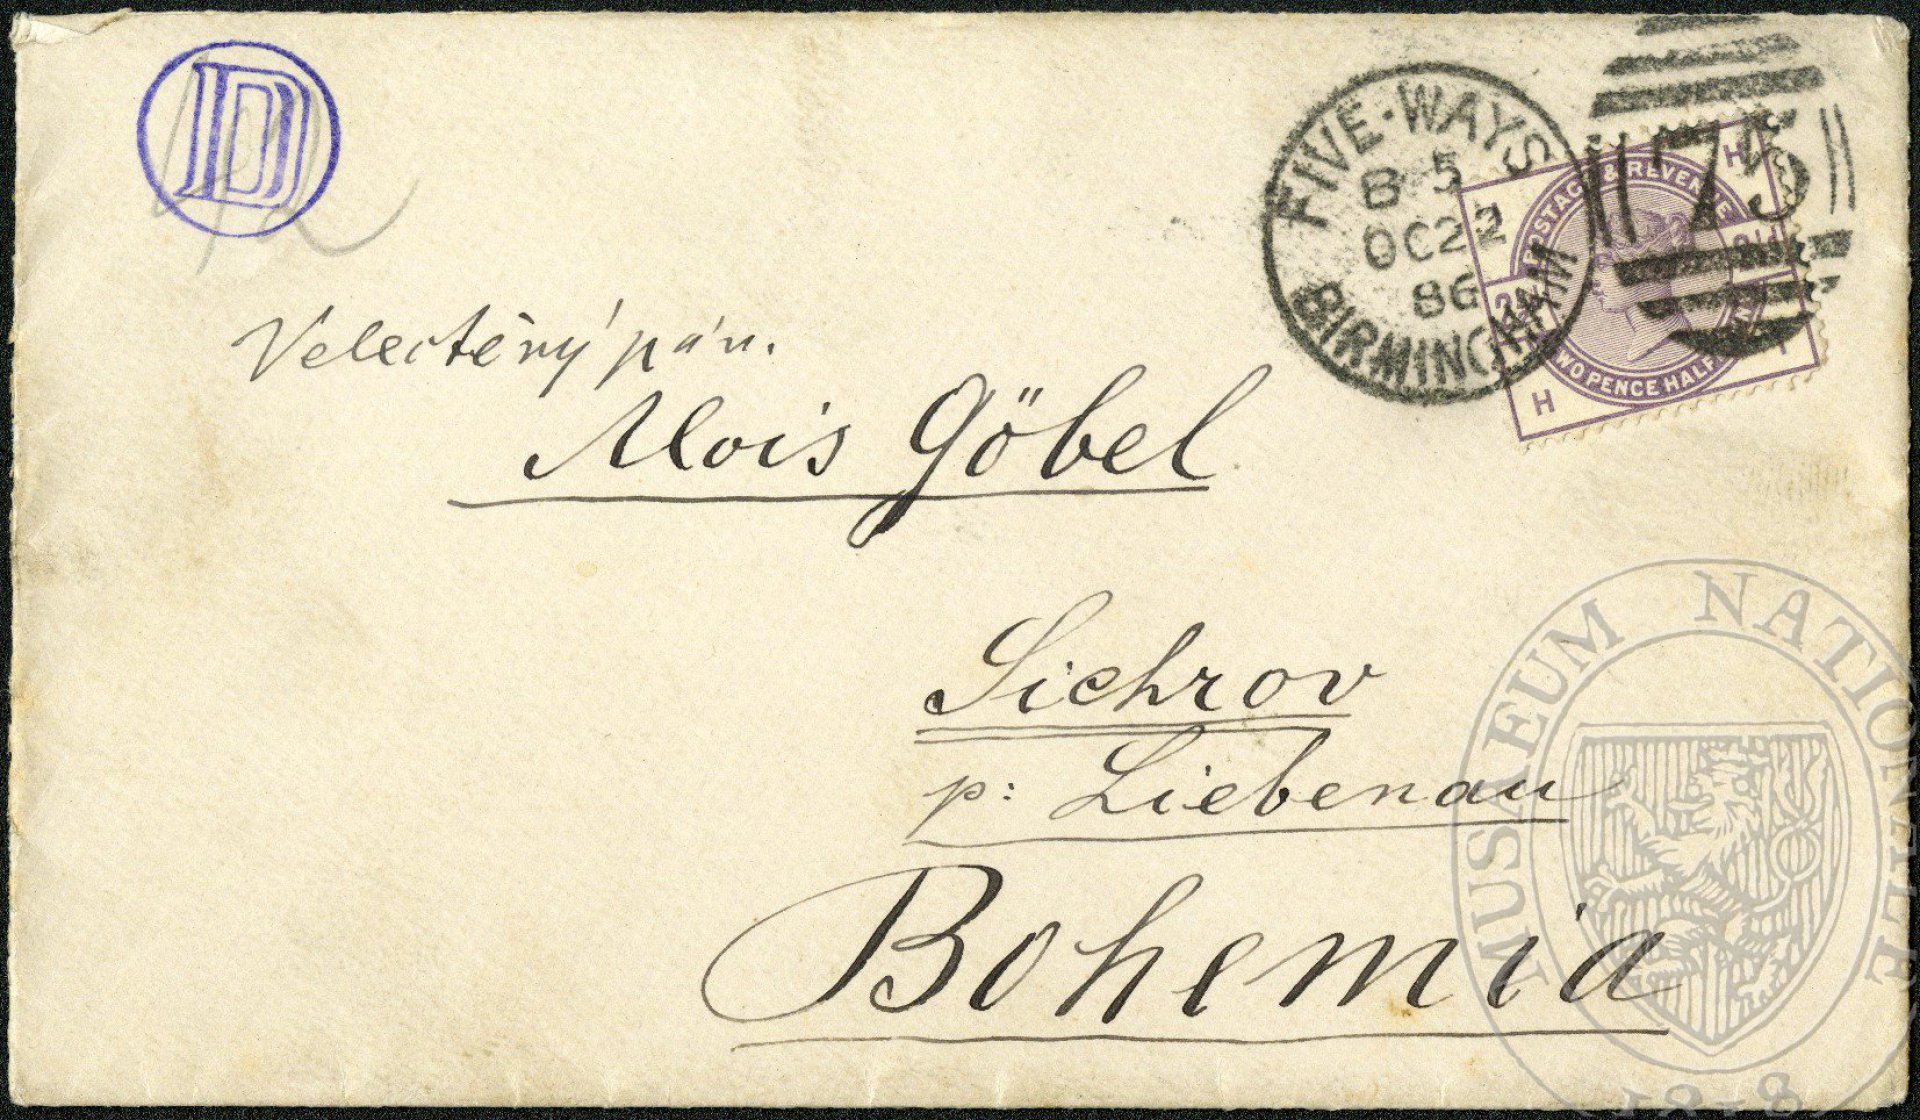 D
FIVE·WAYS
B 5
OC 22
86
BIRMINGHAM
75
POSTAGE & REVENUE
H
TWO PENCE HALF
H
Velectěný pán.
Alois Göbel
Sichrov
p: Liebenau
Bohemia
MUSAEUM NATIONALE
1818